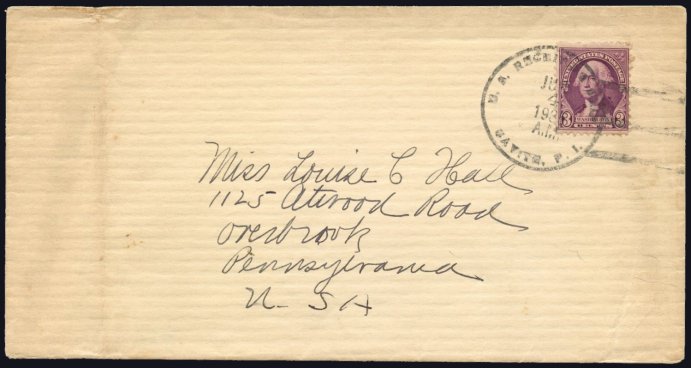 U. S. RECEI
JU
4
193
A.M.
CAVITE, P. I.
UNITED STATES POSTAGE
3 WASHINGTON 3
Miss Louise C Hall
1125 Atwood Road
Overbrook
Pennsylvania
U. S A